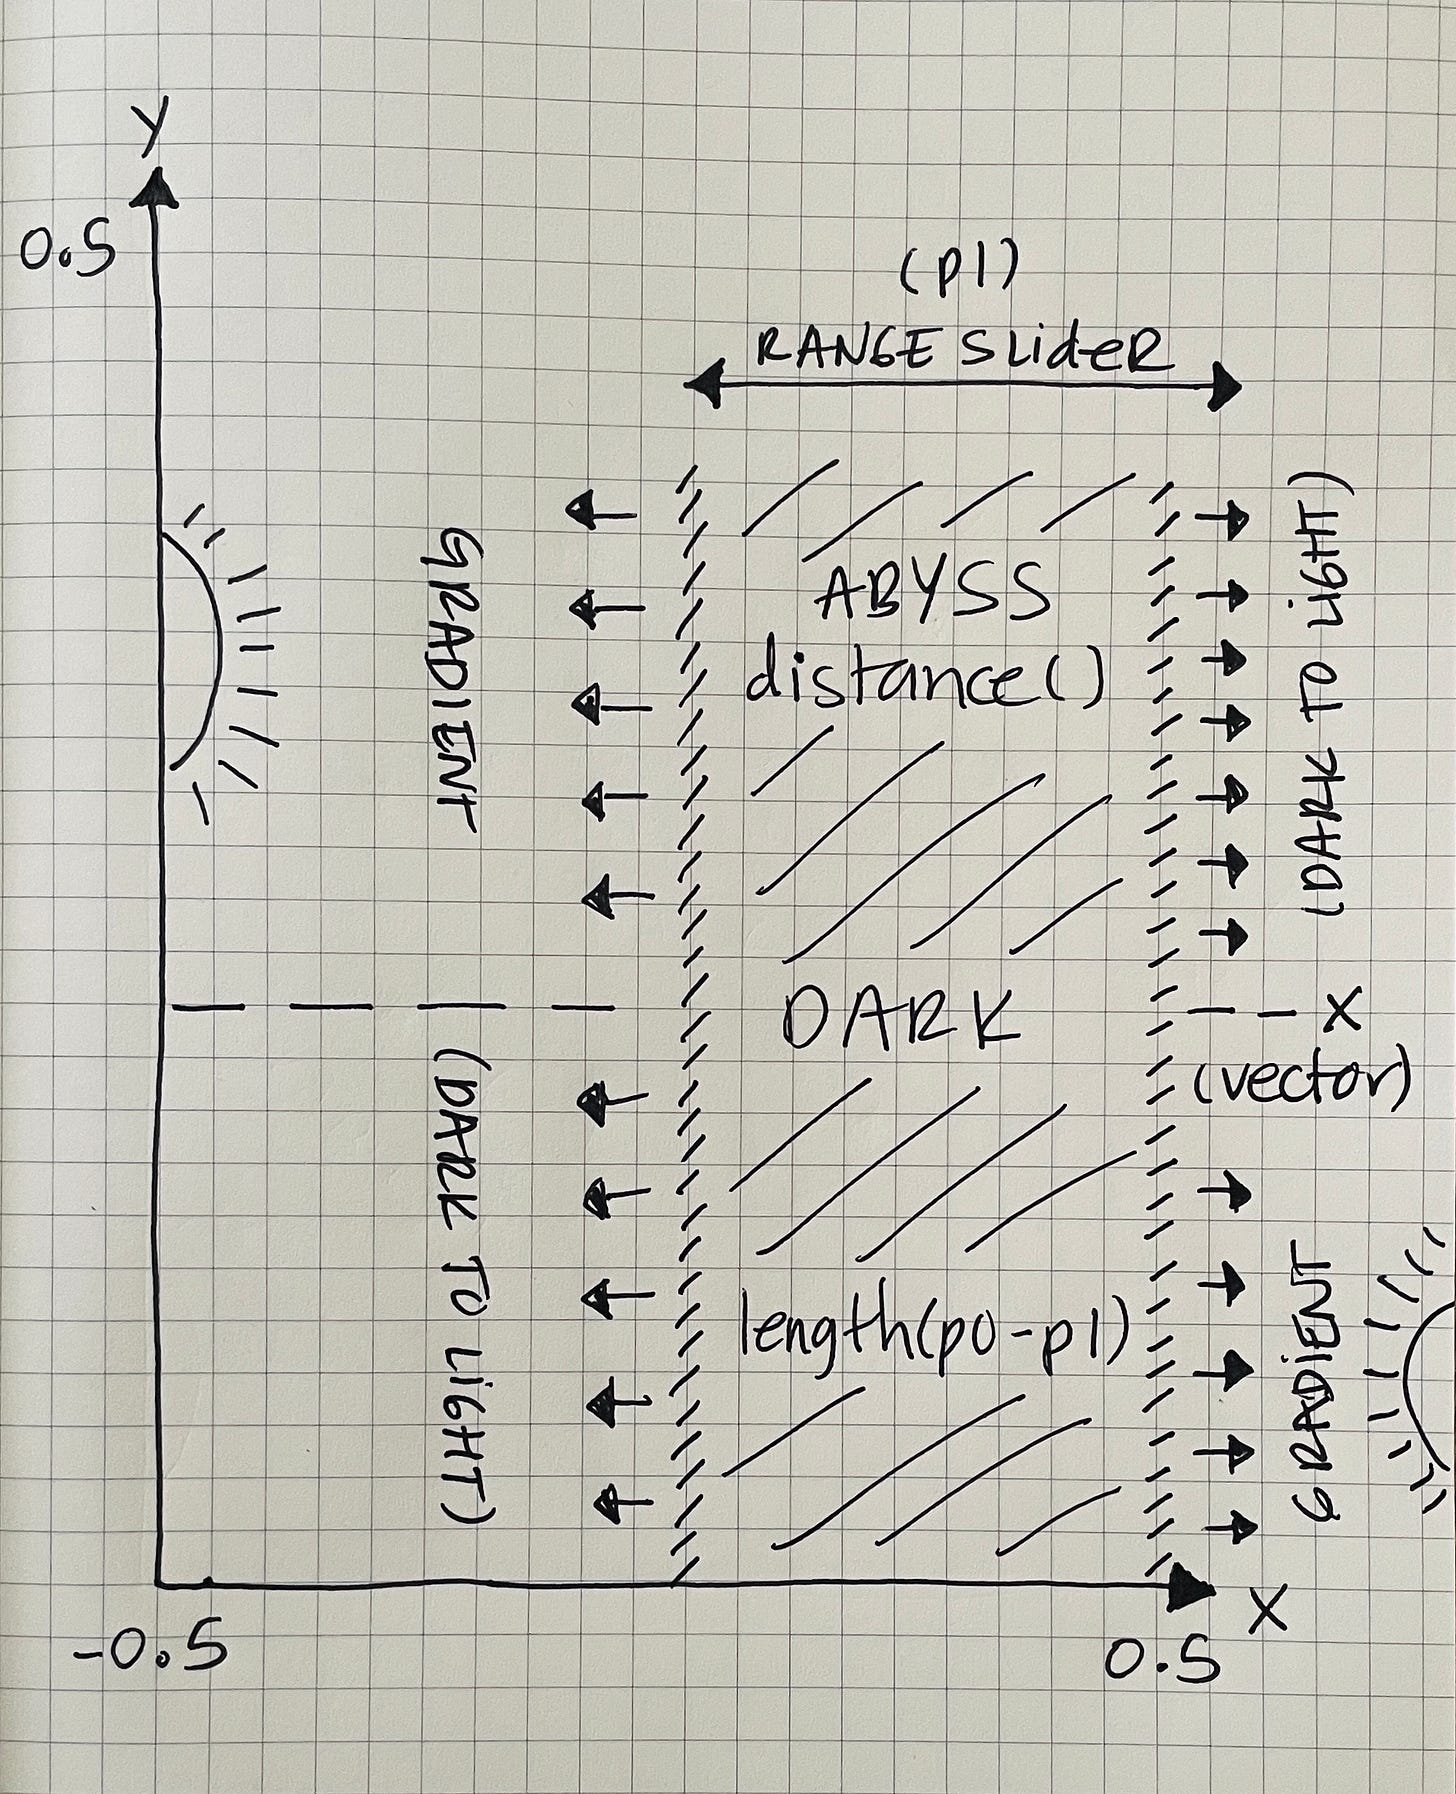 Y
0.5
(p1)
RANGE SLideR
GRADIENT
(DARK TO LiGHT)
ABYSS
distance()
DARK
length(p0-p1)
(DARK TO LiGHT)
X
(vector)
GRADiENT
X
-0.5
0.5